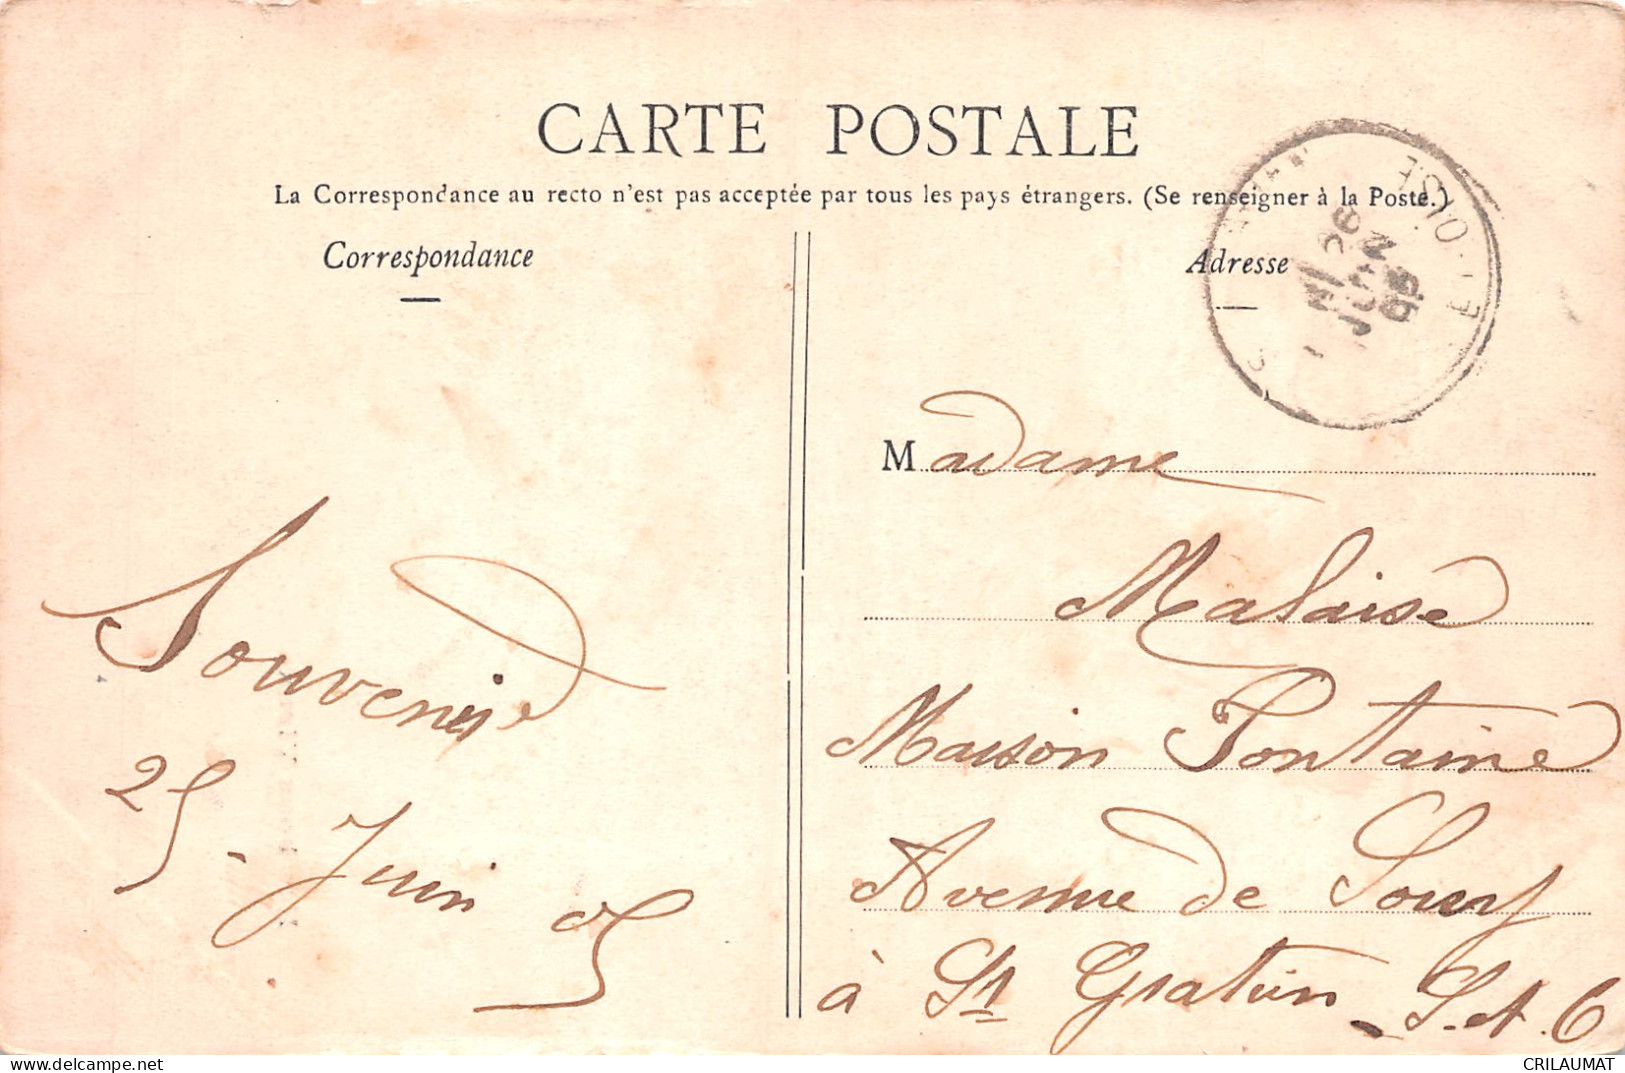 CARTE POSTALE
La Correspondance au recto n'est pas acceptée par tous les pays étrangers. (Se renseigner à la Poste.)
Correspondance
Adresse
26
JUIN
05
Souvenir
25 - Juin 05
Madame
Malaise
Maison Fontaine
Avenue de
à St Gratien - S. et O
delcampe.net
CRILAUMAT